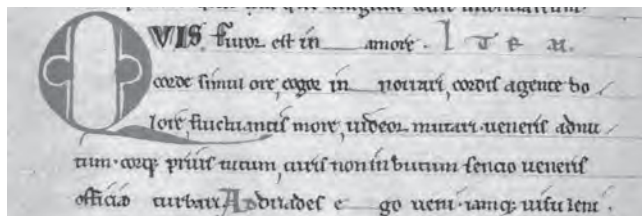 QVIS furor est in amore. I T E M.
corde simul ore, cogor in nouari, cordis agente do
lore, fluctuantis more, uideor mutari. ueneris adnu
tum. corq; prius tutum, curis non inbutum sencio ueneris
officio turbari. Ad driades e go ueni. iamq; uisu leni.